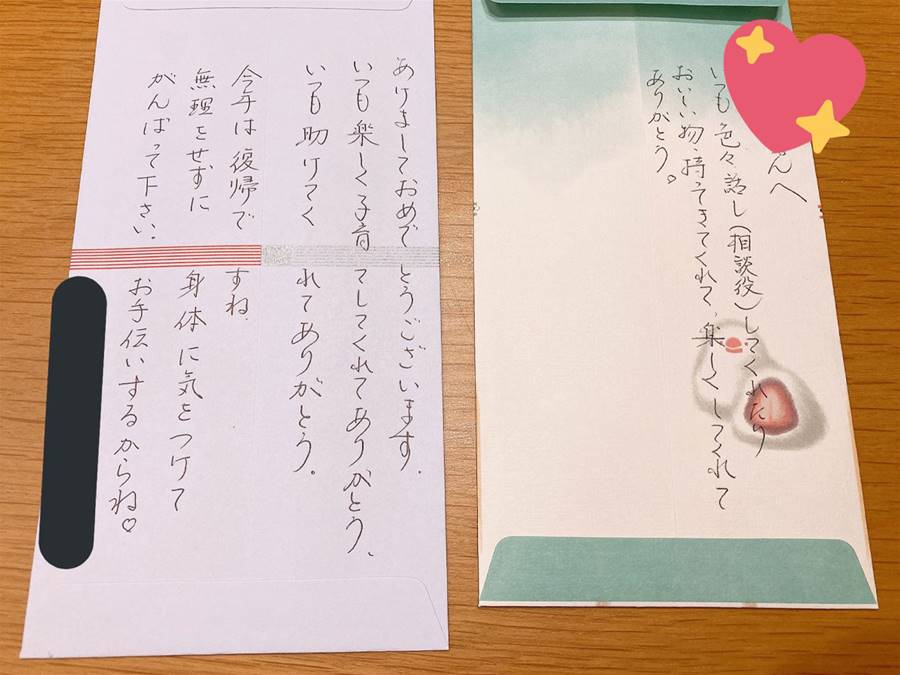 んへ
いつも色々話し(相談役)してくれたり
おいしい物、持ってきてくれて、楽しくしてくれて
ありがとう。
あけましておめでとうございます.
いつも楽しく子育てしてくれてありがとう、
いつも助けてくれてありがとう。
今年は復帰ですね.
無理をせずに身体に気をつけて
がんばって下さい. お手伝いするからね♡